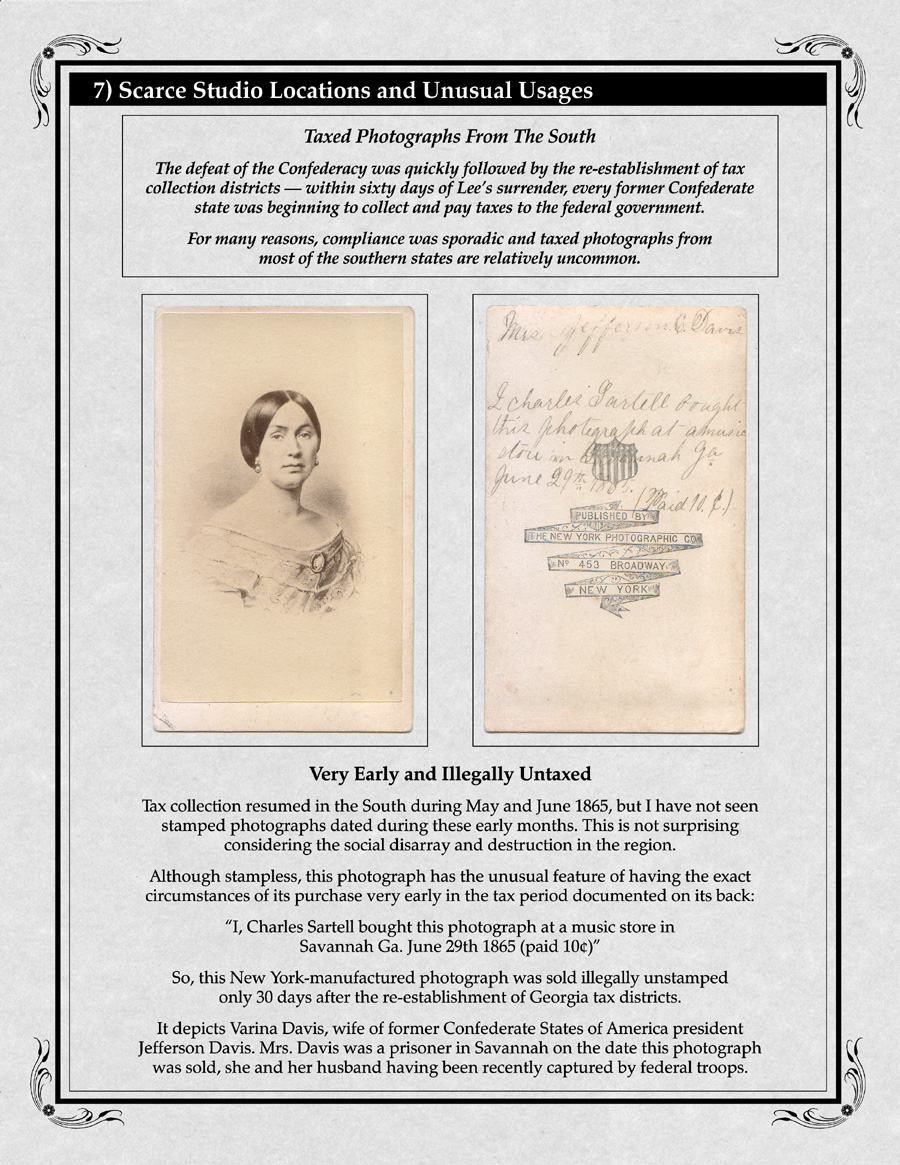 7) Scarce Studio Locations and Unusual Usages
Taxed Photographs From The South
The defeat of the Confederacy was quickly followed by the re-establishment of tax
collection districts — within sixty days of Lee's surrender, every former Confederate
state was beginning to collect and pay taxes to the federal government.
For many reasons, compliance was sporadic and taxed photographs from
most of the southern states are relatively uncommon.
Mrs Jefferson C. Davis
I charles Sartell bought
this photograph at a music
store in Savannah Ga
June 29th 1865.
(Paid 10. ¢.)
PUBLISHED BY
THE NEW YORK PHOTOGRAPHIC CO
No 453 BROADWAY
NEW YORK
Very Early and Illegally Untaxed
Tax collection resumed in the South during May and June 1865, but I have not seen
stamped photographs dated during these early months. This is not surprising
considering the social disarray and destruction in the region.
Although stampless, this photograph has the unusual feature of having the exact
circumstances of its purchase very early in the tax period documented on its back:
“I, Charles Sartell bought this photograph at a music store in
Savannah Ga. June 29th 1865 (paid 10¢)”
So, this New York-manufactured photograph was sold illegally unstamped
only 30 days after the re-establishment of Georgia tax districts.
It depicts Varina Davis, wife of former Confederate States of America president
Jefferson Davis. Mrs. Davis was a prisoner in Savannah on the date this photograph
was sold, she and her husband having been recently captured by federal troops.